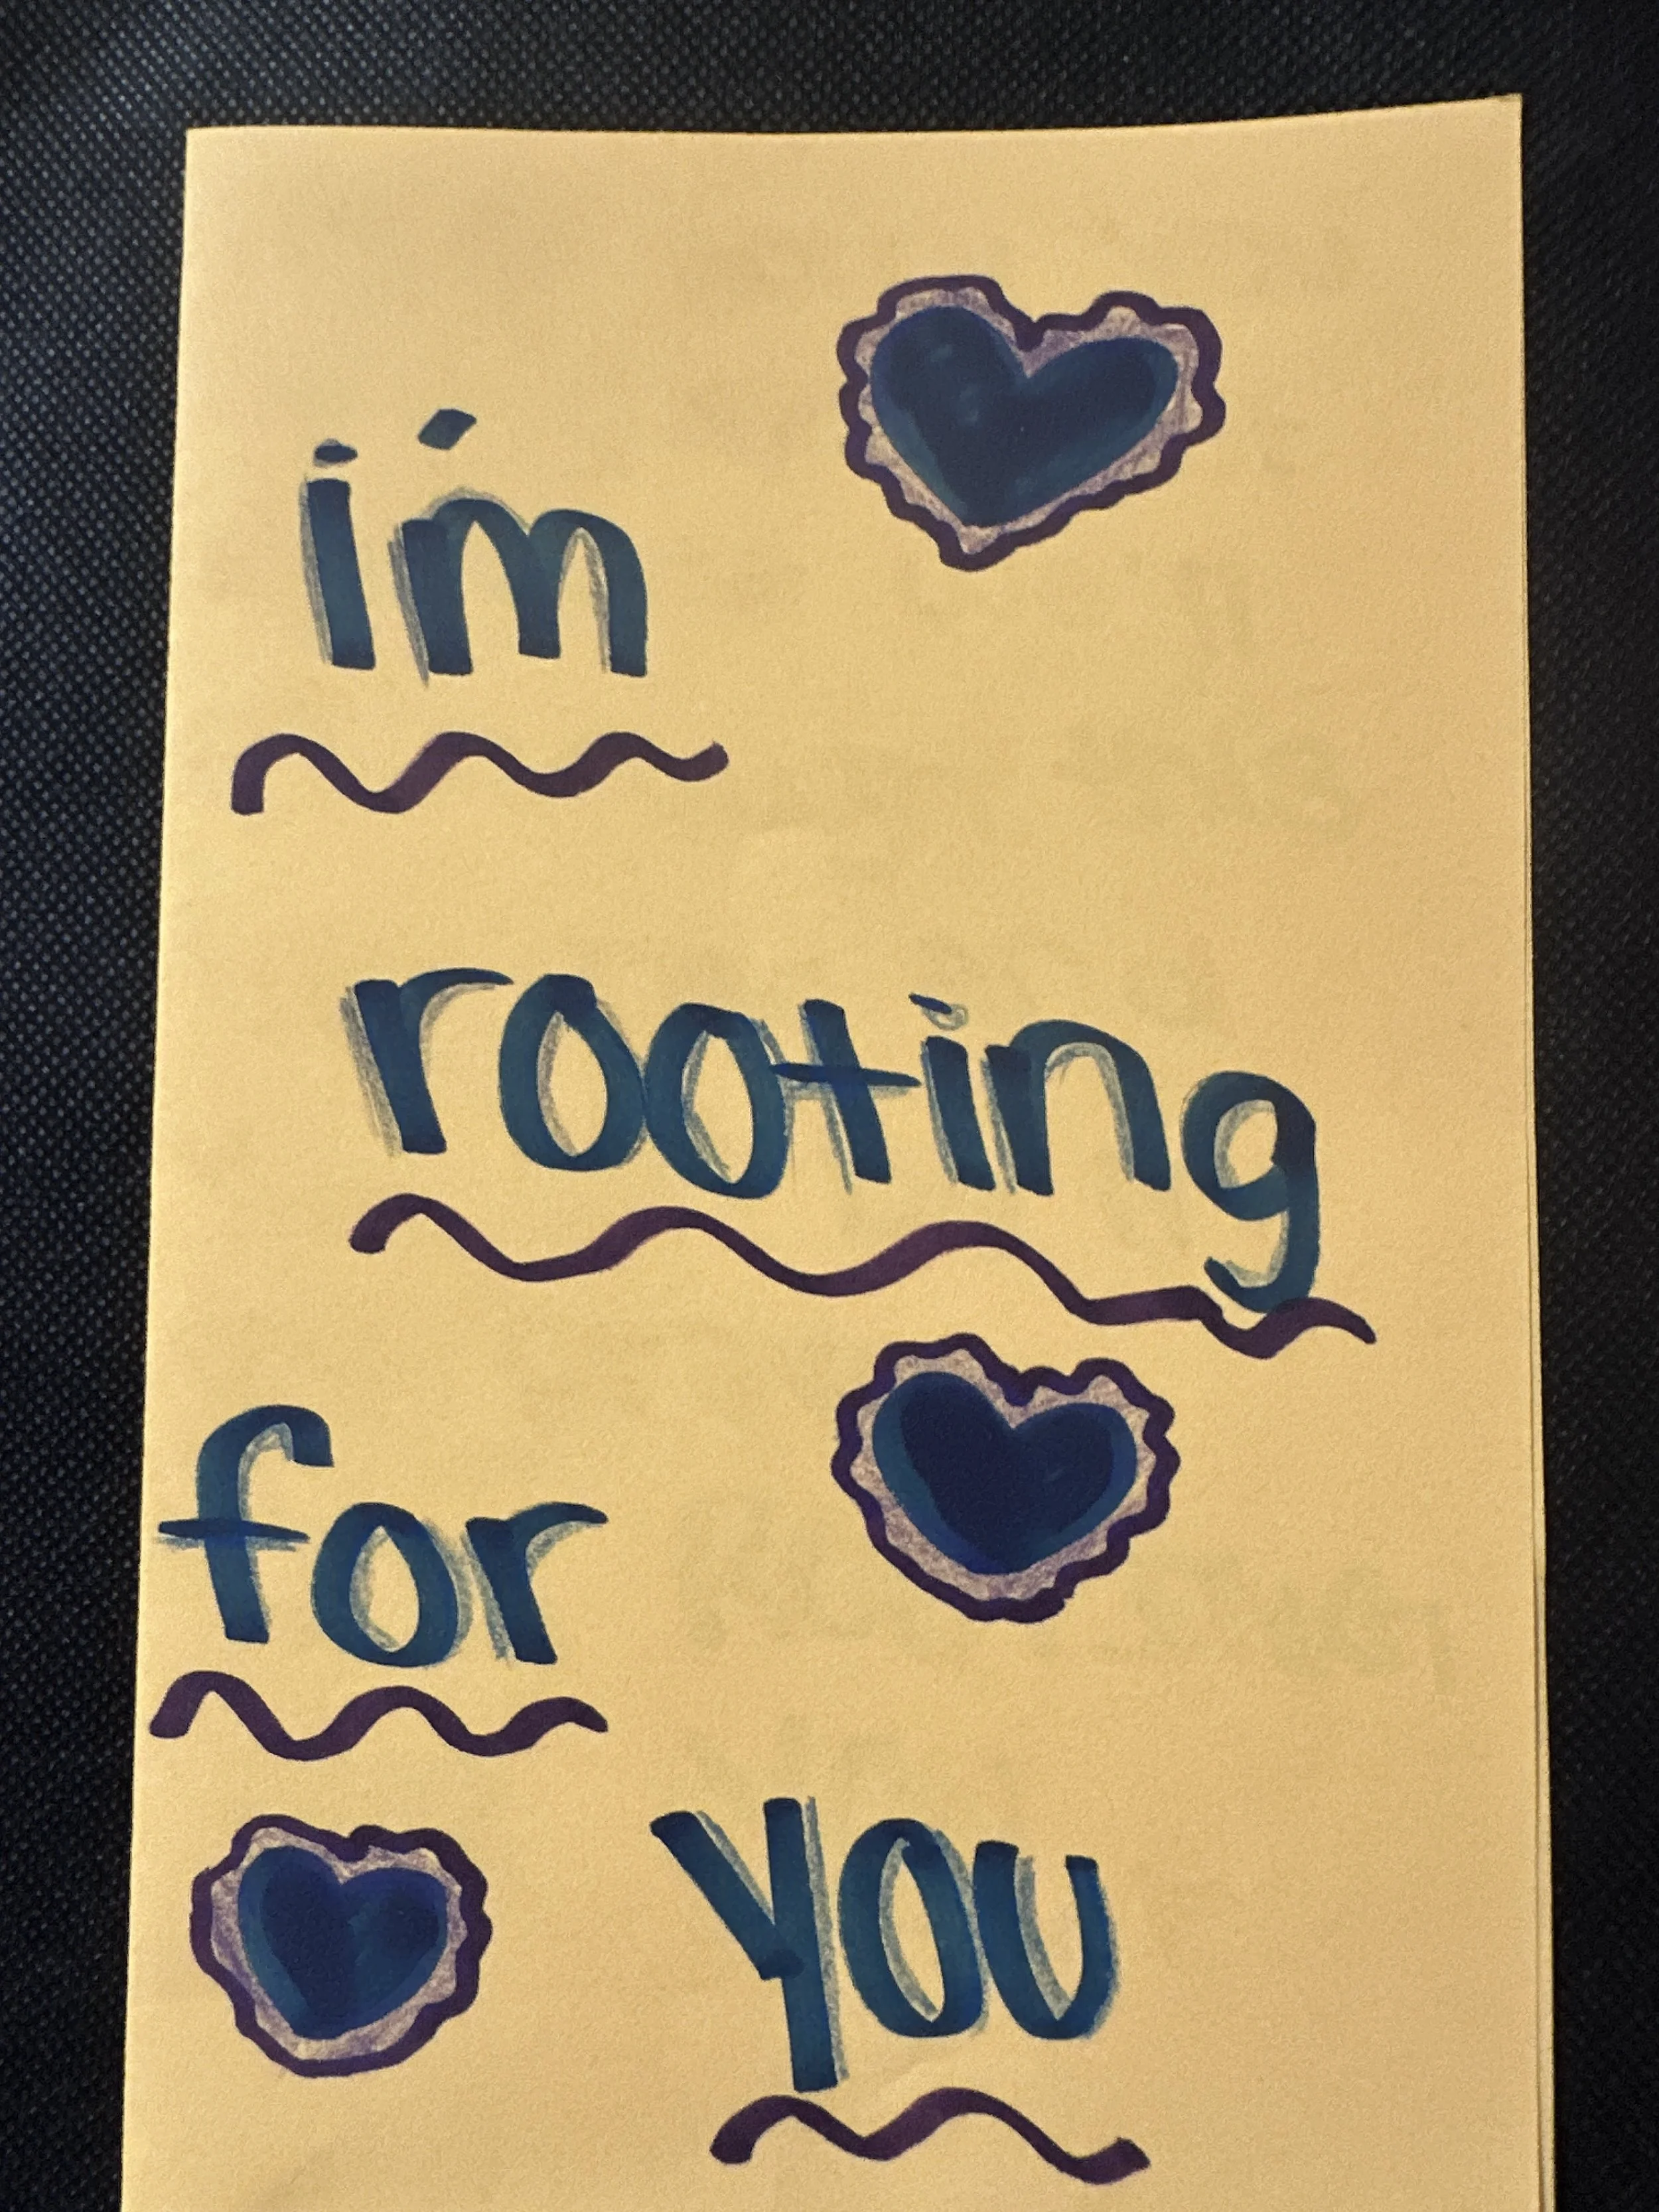 i'm
rooting
for
you